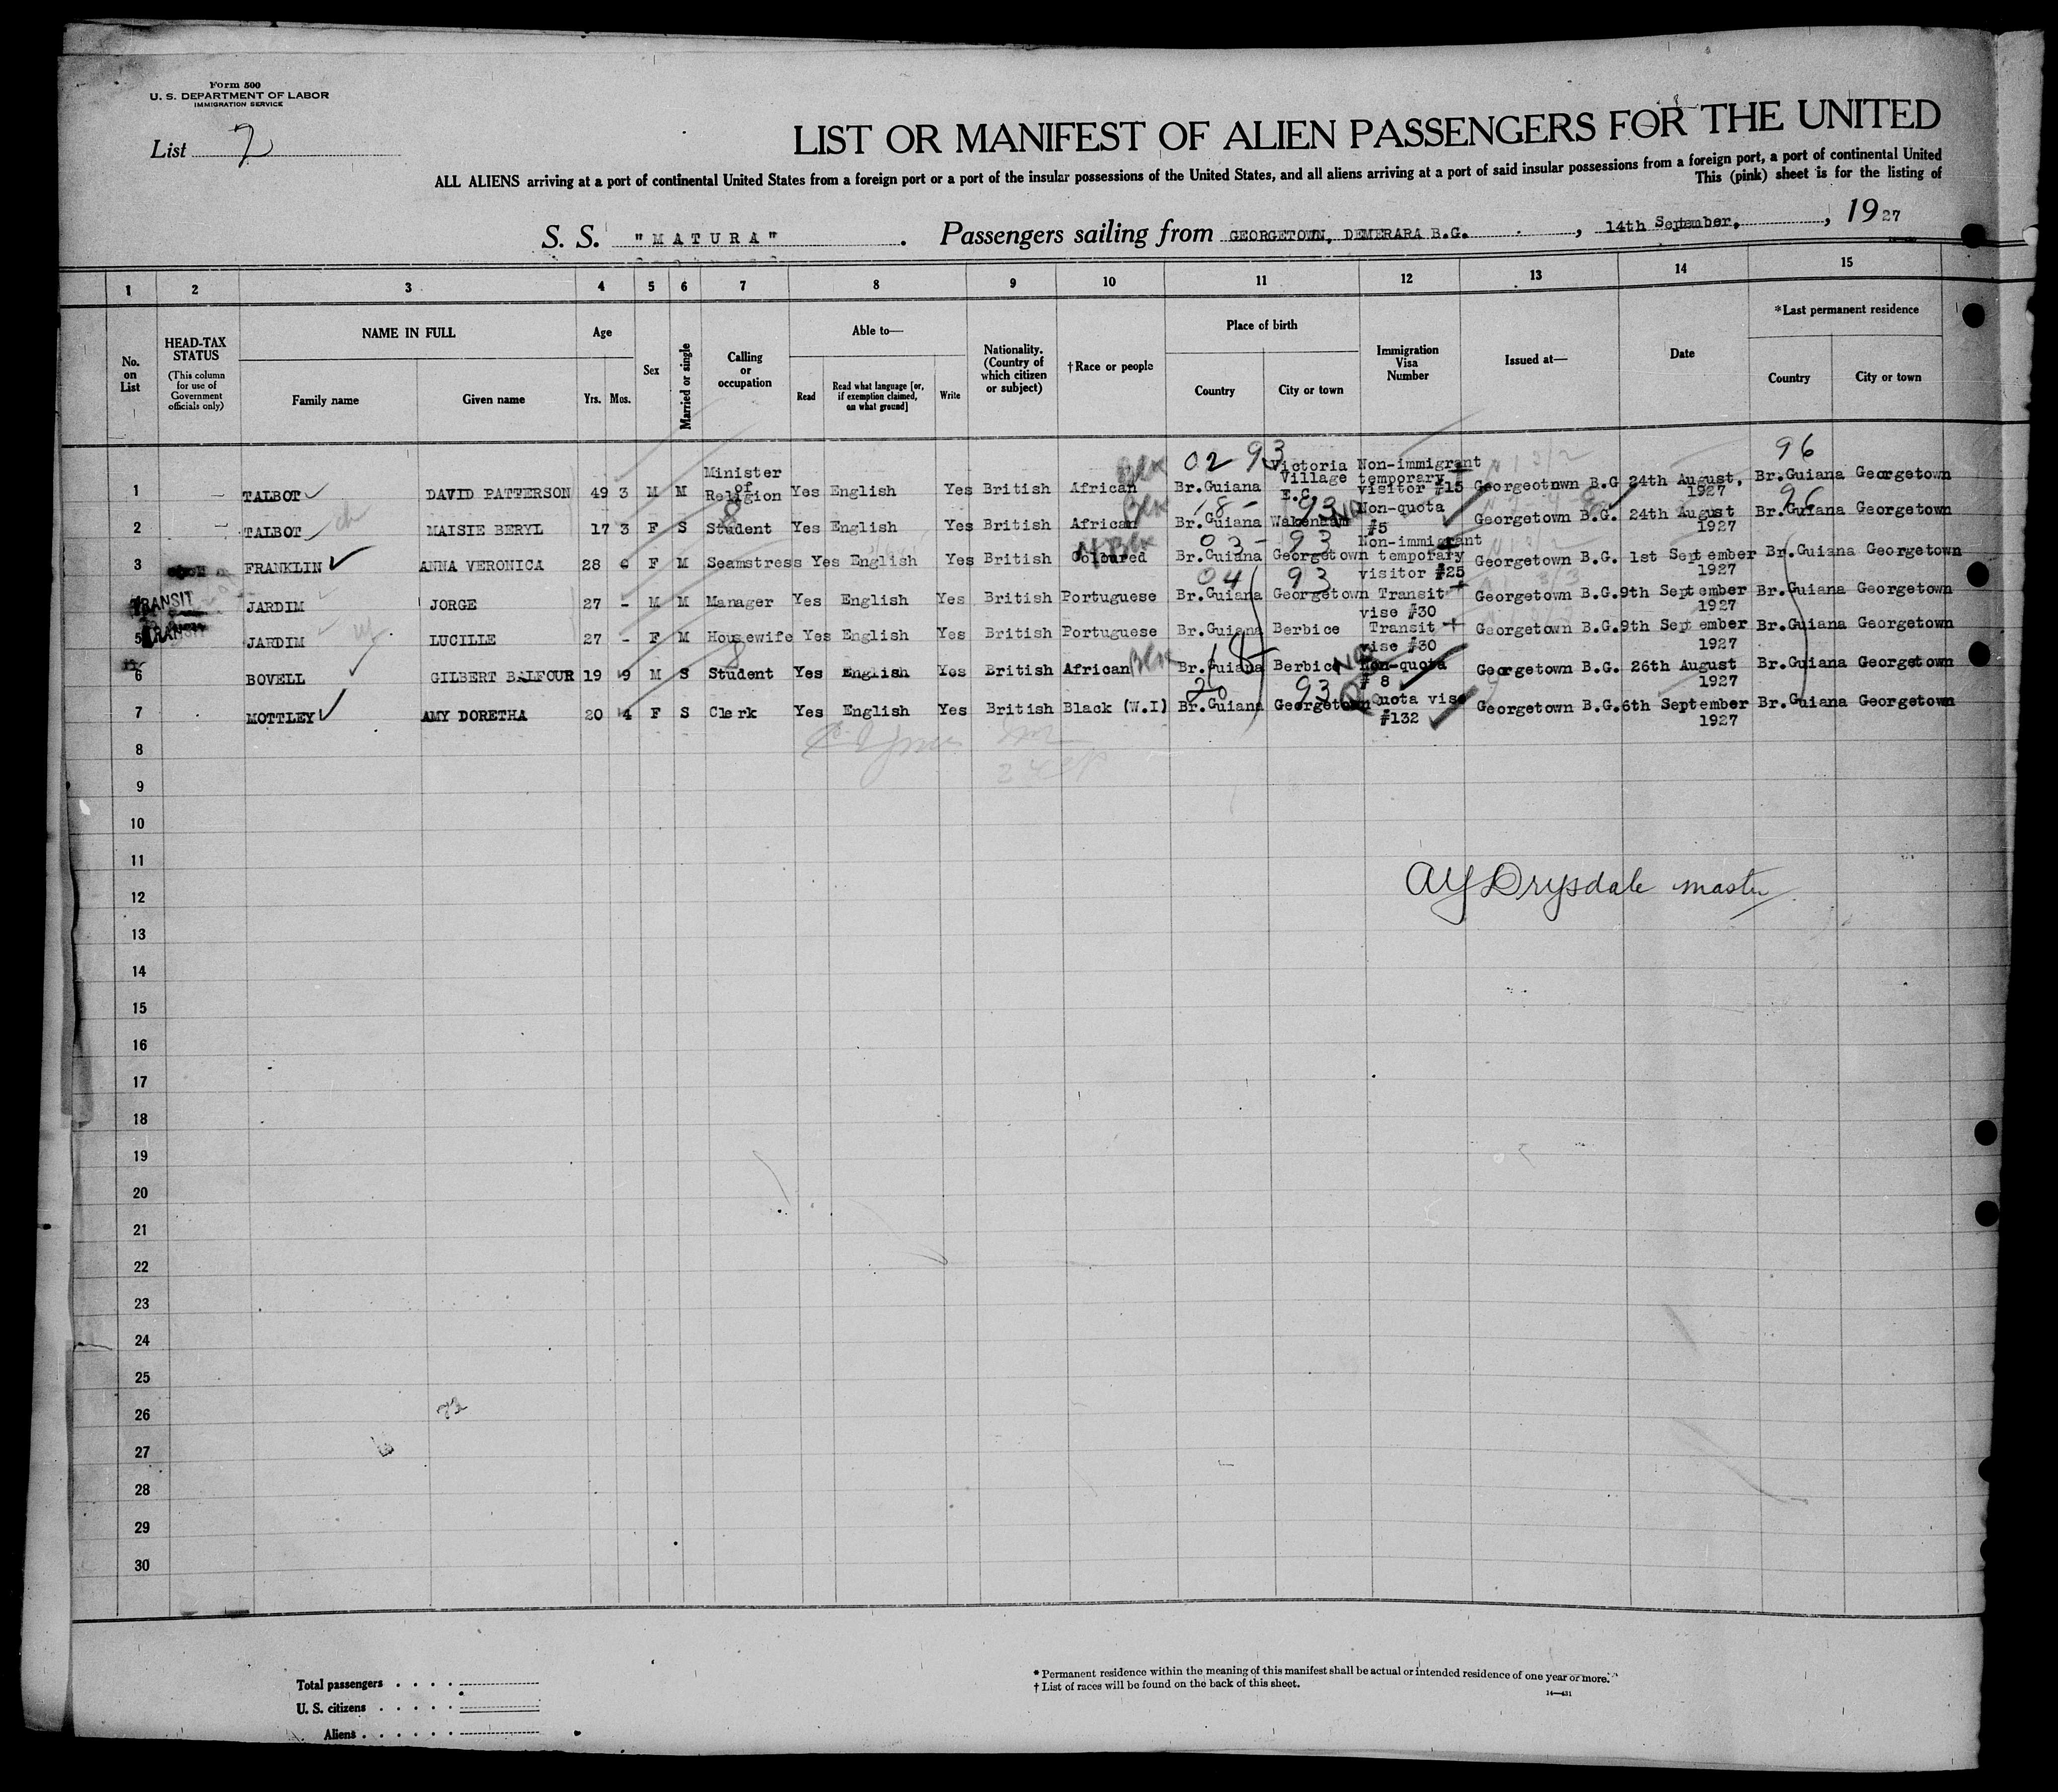 Form 500
U. S. DEPARTMENT OF LABOR
IMMIGRATION SERVICE
List 2
LIST OR MANIFEST OF ALIEN PASSENGERS FOR THE UNITED
ALL ALIENS arriving at a port of continental United States from a foreign port or a port of the insular possessions of the United States, and all aliens arriving at a port of said insular possessions from a foreign port, a port of continental United
This (pink) sheet is for the listing of
S. S. "MATURA" . Passengers sailing from GEORGETOWN, DEMERARA B.G. , 14th September, , 1927
1 2 3 4 5 6 7 8 9 10 11 12 13 14 15
No. on List
HEAD-TAX STATUS
(This column for use of Government officials only)
NAME IN FULL
Family name Given name
Age
Yrs. Mos.
Sex
Married or single
Calling or occupation
Able to—
Read
Read what language [or, if exemption claimed, on what ground]
Write
Nationality. (Country of which citizen or subject)
† Race or people
Place of birth
Country City or town
Immigration Visa Number
Issued at—
Date
* Last permanent residence
Country City or town
02 93 96
1 TALBOT DAVID PATTERSON 49 3 M M Minister of Religion Yes English Yes British African Blk Br.Guiana Victoria Village E.C. Non-immigrant temporary visitor #15 Georgeotnwn B.G 24th August, 1927 Br.Guiana Georgetown
18 - 93 96
2 TALBOT MAISIE BERYL 17 3 F S Student Yes English Yes British African Blk Br.Guiana Wakenaam Non-quota #5 Georgetown B.G. 24th August 1927 Br.Guiana Georgetown
03 - 93
3 FRANKLIN ANNA VERONICA 28 F M Seamstress Yes English Yes British Coloured Blk Br.Guiana Georgetown Non-immigrant temporary visitor #25 Georgetown B.G. 1st September 1927 Br.Guiana Georgetown
04 93
4 TRANSIT JARDIM JORGE 27 - M M Manager Yes English Yes British Portuguese Br.Guiana Georgetown Transit vise #30 Georgetown B.G. 9th September 1927 Br.Guiana Georgetown
5 TRANSIT JARDIM LUCILLE 27 - F M Housewife Yes English Yes British Portuguese Br.Guiana Berbice Transit vise #30 Georgetown B.G. 9th September 1927 Br.Guiana Georgetown
18
6 BOVELL GILBERT BALFOUR 19 9 M S Student Yes English Yes British African Blk Br.Guiana Berbice Non-quota # 8 Georgetown B.G. 26th August 1927 Br.Guiana Georgetown
20 93
7 MOTTLEY AMY DORETHA 20 4 F S Clerk Yes English Yes British Black (W.I) Br.Guiana Georgetown Quota vise #132 Georgetown B.G. 6th September 1927 Br.Guiana Georgetown
8
9
10
11
AY Drysdale master
12
13
14
15
16
17
18
19
20
21
22
23
24
25
26
27
28
29
30
Total passengers . . . .
U. S. citizens . . . . .
Aliens . . . . . .
* Permanent residence within the meaning of this manifest shall be actual or intended residence of one year or more.
† List of races will be found on the back of this sheet.
14—431